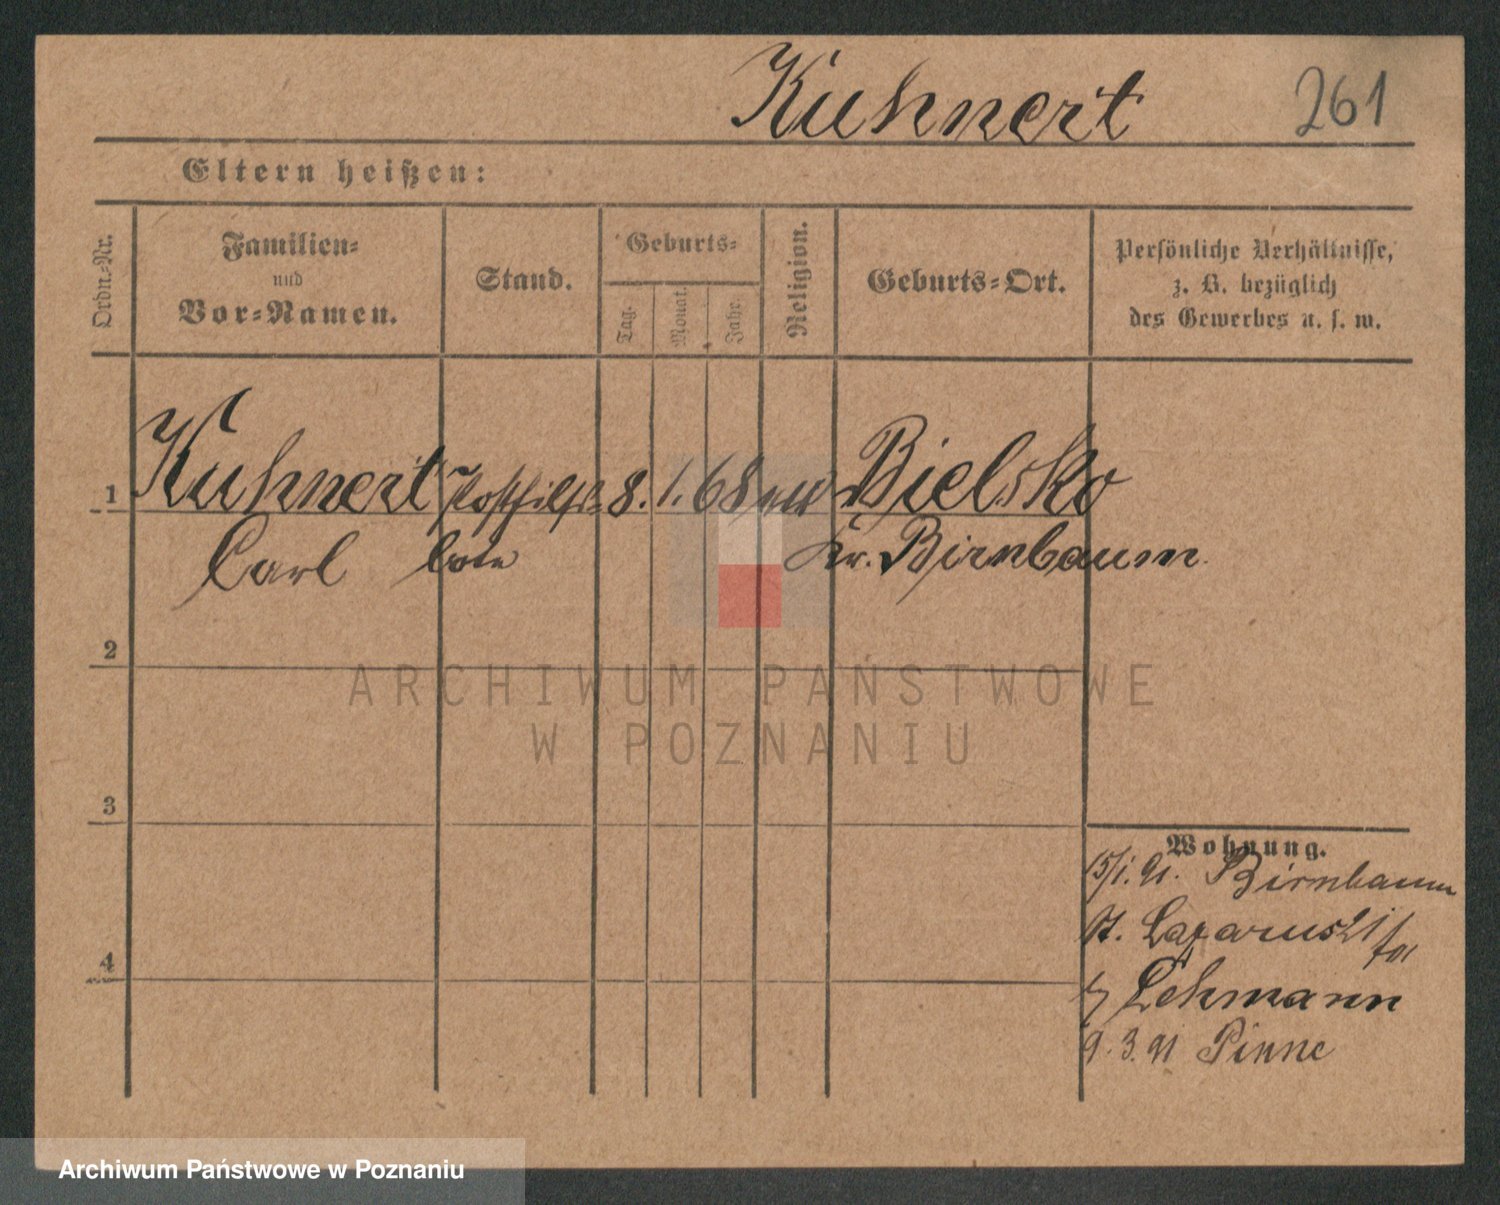 Kuhnert 261
Eltern heißen:
Ordn.-Nr.
Familien-
und
Vor-Namen.
Stand.
Geburts-
Tag.
Monat.
Jahr.
Religion.
Geburts-Ort.
Persönliche Verhältnisse,
z. B. bezüglich
des Gewerbes u. s. w.
1 Kuhnert Posthilfs- 8. 1. 68 Bielsko
Carl bote Kr. Birnbaum
2
ARCHIWUM PAŃSTWOWE
W POZNANIU
3
Wohnung.
15/1. 91. Birnbaum
St. Lazarus 21
Lehmann
4
9. 3. 91 Pinne
Archiwum Państwowe w Poznaniu